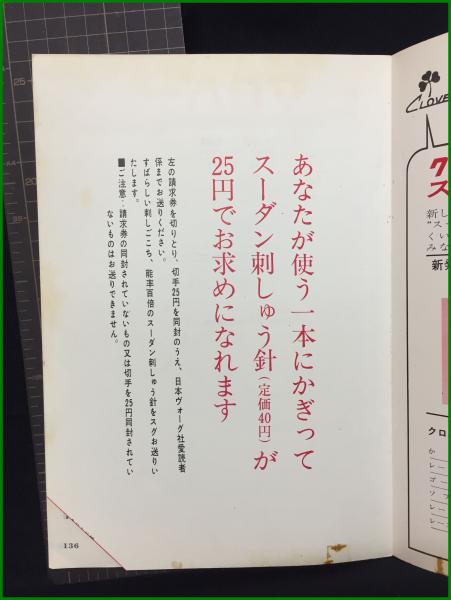 あなたが使う一本にかぎって
スーダン刺しゅう針(定価40円)が
25円でお求めになれます
左の請求券を切りとり、切手25円を同封のうえ、日本ヴォーグ社愛読者
係までお送りください。
すばらしい刺しごこち、能率百倍のスーダン刺しゅう針をスグお送りい
たします。
■ご注意:請求券の同封されていないもの又は切手を25円同封されてい
ないものはお送りできません。
136
CLOVE
ク
ス
新し
"ス
くい
みな
新発
クロ